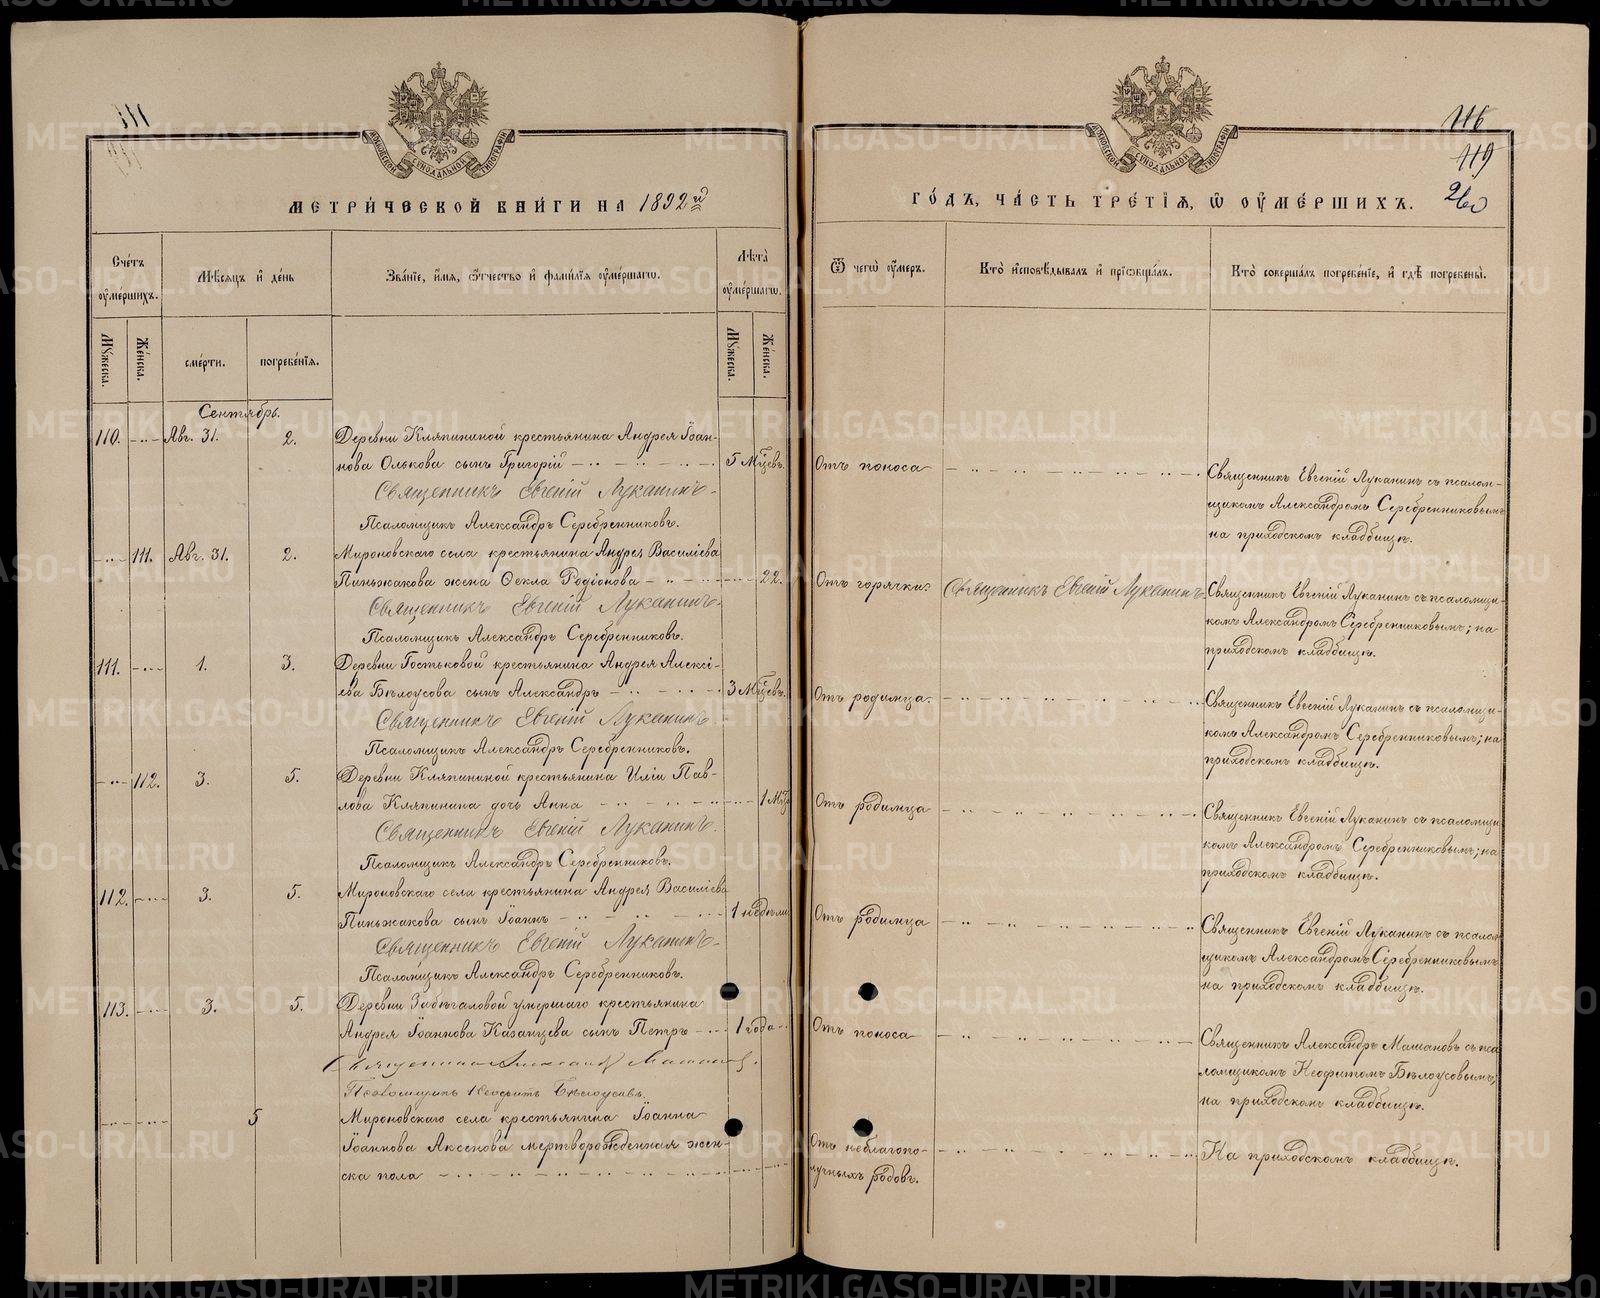 111
116
119
260
МОСКОВСКОЙ СѴНОДАЛЬНОЙ ТИПОГРАФІИ
МОСКОВСКОЙ СѴНОДАЛЬНОЙ ТИПОГРАФІИ
МЕТРИ́ЧЕСКОЙ КНИ́ГИ НА 1892й
ГО́ДЪ, ЧА́СТЬ ТРЕ́ТІѦ, Ѡ ОУМЕ́РШИХЪ.
Сче́тъ оумершихъ.
Мужеска.
Же́нска.
Мѣсяцъ и де́нь
сме́рти.
погребе́нїя.
Зва́нїе, и́мя, о́тчество и фами́лїя оуме́ршагω.
Лѣта̀ оуме́ршагω.
Мужеска.
Же́нска.
Ѿ чегὼ оу́меръ.
Кто̀ исповѣ́дывалъ и прїωбща́лъ.
Кто̀ соверша́лъ погребе́нїе, и гдѣ̀ погребены̀.
Сентябрь.
110. Авг. 31. 2. Деревни Кляпининой крестьянина Андрея Іоан-
нова Олькова сынъ Григорій 5 Мцевъ. Отъ поноса
Священникъ Евгеній Луканинъ.
Псаломщикъ Александръ Серебренниковъ.
Священникъ Евгеній Луканинъ съ псалом-
щикомъ Александромъ Серебренниковымъ
на приходскомъ кладбищѣ.
111. Авг. 31. 2. Мироновскаго села крестьянина Андрея Василіева
Пиньжакова жена Ѳекла Родіонова 22. Отъ горячки. Священникъ Евгеній Луканинъ
Священникъ Евгеній Луканинъ.
Псаломщикъ Александръ Серебренниковъ.
Священникъ Евгеній Луканинъ съ псаломщи-
комъ Александромъ Серебренниковымъ; на
приходскомъ кладбищѣ.
111. 1. 3. Деревни Гостьковой крестьянина Андрея Алексі-
ева Бѣлоусова сынъ Александръ 3 Мцевъ. Отъ родимца.
Священникъ Евгеній Луканинъ.
Псаломщикъ Александръ Серебренниковъ.
Священникъ Евгеній Луканинъ съ псаломщи-
комъ Александромъ Серебренниковымъ; на
приходскомъ кладбищѣ.
112. 3. 5. Деревни Кляпининой крестьянина Иліи Пав-
лова Кляпинина дочь Анна 1 Мцъ Отъ родимца
Священникъ Евгеній Луканинъ.
Псаломщикъ Александръ Серебренниковъ.
Священникъ Евгеній Луканинъ съ псаломщи-
комъ Александромъ Серебренниковымъ; на
приходскомъ кладбищѣ.
112. 3. 5. Мироновскаго села крестьянина Андрея Василіева
Пиньжакова сынъ Іоаннъ 1 недѣли Отъ родимца
Священникъ Евгеній Луканинъ.
Псаломщикъ Александръ Серебренниковъ.
Священникъ Евгеній Луканинъ съ псалом
щикомъ Александромъ Серебренниковымъ
на приходскомъ кладбищѣ.
113. 3. 5. Деревни Забѣгаловой умершаго крестьянина
Андрея Іоаннова Казанцева сынъ Петръ 1 года Отъ поноса
Священникъ Александръ Машановъ.
Псаломщикъ Неофитъ Бѣлоусовъ.
Священникъ Александръ Машановъ съ пса
ломщикомъ Неофитомъ Бѣлоусовымъ;
на приходскомъ кладбищѣ.
5 Мироновскаго села крестьянина Іоанна
Іоаннова Аксенова мертворожденная жен-
ска пола
Отъ неблагопо-
лучныхъ родовъ.
На приходскомъ кладбищѣ.
METRIKI.GASO-URAL.RU